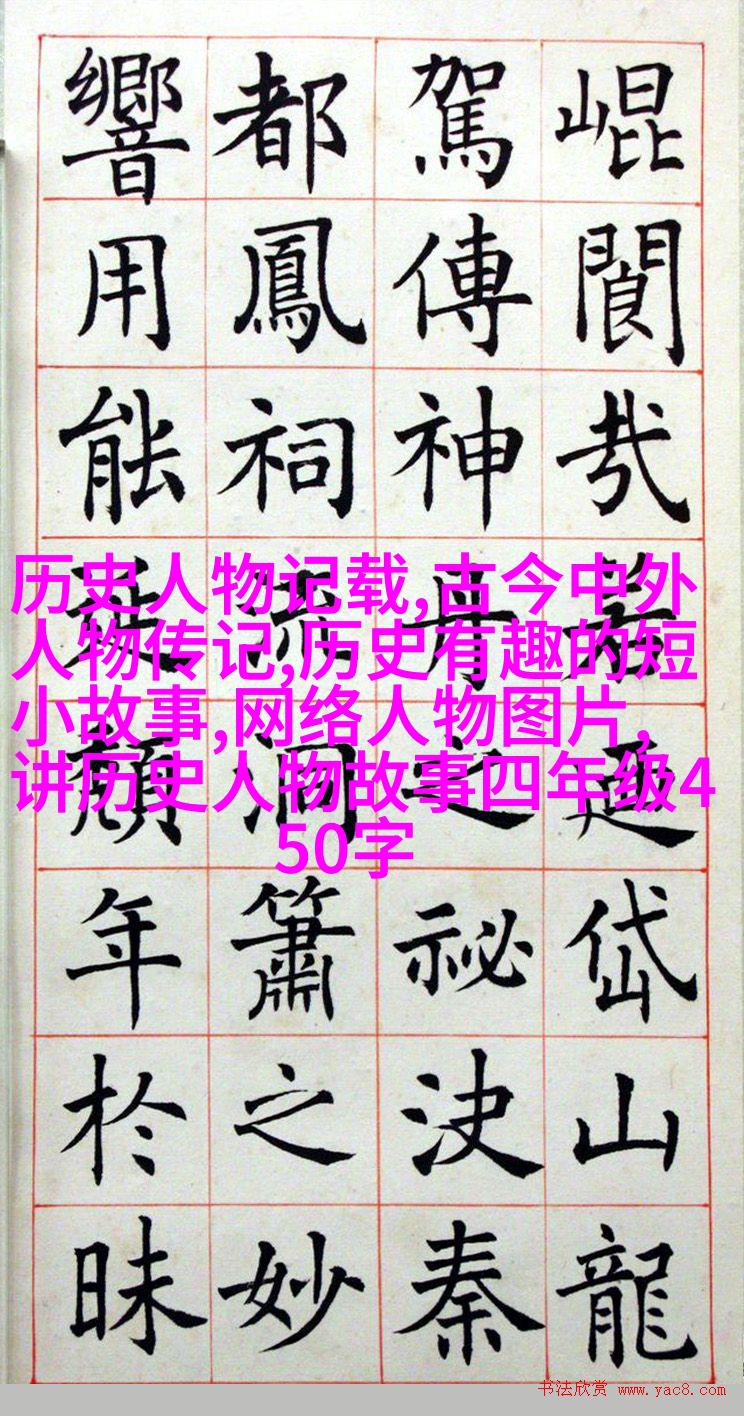 崐閬哉若迺岱山龍
駕傳神丹之祕決秦
都鳳祠流洞簫之妙
響用能延頹年於昧
历史人物记载,古今中外
人物传记,历史有趣的短
小故事,网络人物图片,
讲历史人物故事四年级4
50字
书法欣赏 www.yac8.com